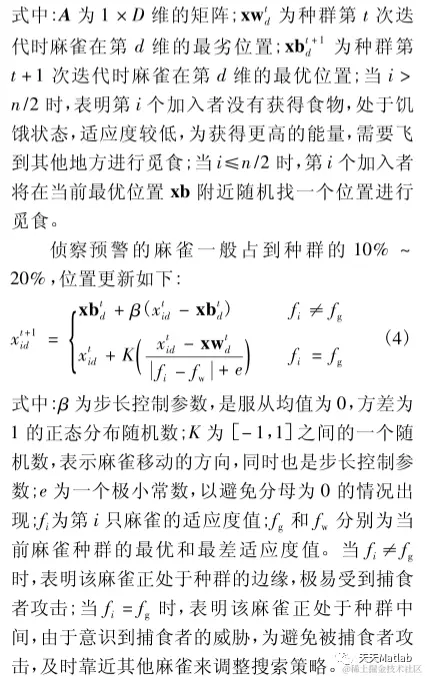 式中:A 为 1 × D 维的矩阵;xwᵗ_d 为种群第 t 次迭
代时麻雀在第 d 维的最劣位置;xbᵗ⁺¹_d 为种群第
t + 1 次迭代时麻雀在第 d 维的最优位置;当 i >
n/2 时,表明第 i 个加入者没有获得食物,处于饥
饿状态,适应度较低,为获得更高的能量,需要飞
到其他地方进行觅食;当 i≤n/2 时,第 i 个加入者
将在当前最优位置 xb 附近随机找一个位置进行
觅食。
侦察预警的麻雀一般占到种群的 10% ~
20% ,位置更新如下:
xᵗ⁺¹_id = { xbᵗ_d + β(xᵗ_id - xbᵗ_d) f_i ≠ f_g
xᵗ_id + K( (xᵗ_id - xwᵗ_d) / (|f_i - f_w| + e) ) f_i = f_g (4)
式中:β 为步长控制参数,是服从均值为 0,方差为
1 的正态分布随机数;K 为 [ - 1,1] 之间的一个随
机数,表示麻雀移动的方向,同时也是步长控制参
数;e 为一个极小常数,以避免分母为 0 的情况出
现;f_i为第 i 只麻雀的适应度值;f_g 和 f_w 分别为当
前麻雀种群的最优和最差适应度值。当 f_i ≠ f_g
时,表明该麻雀正处于种群的边缘,极易受到捕食
者攻击;当 f_i = f_g 时,表明该麻雀正处于种群中
间,由于意识到捕食者的威胁,为避免被捕食者攻
击,及时靠近其他麻雀来调整搜索策略。
天天Matlab
@稀土掘金技术社区